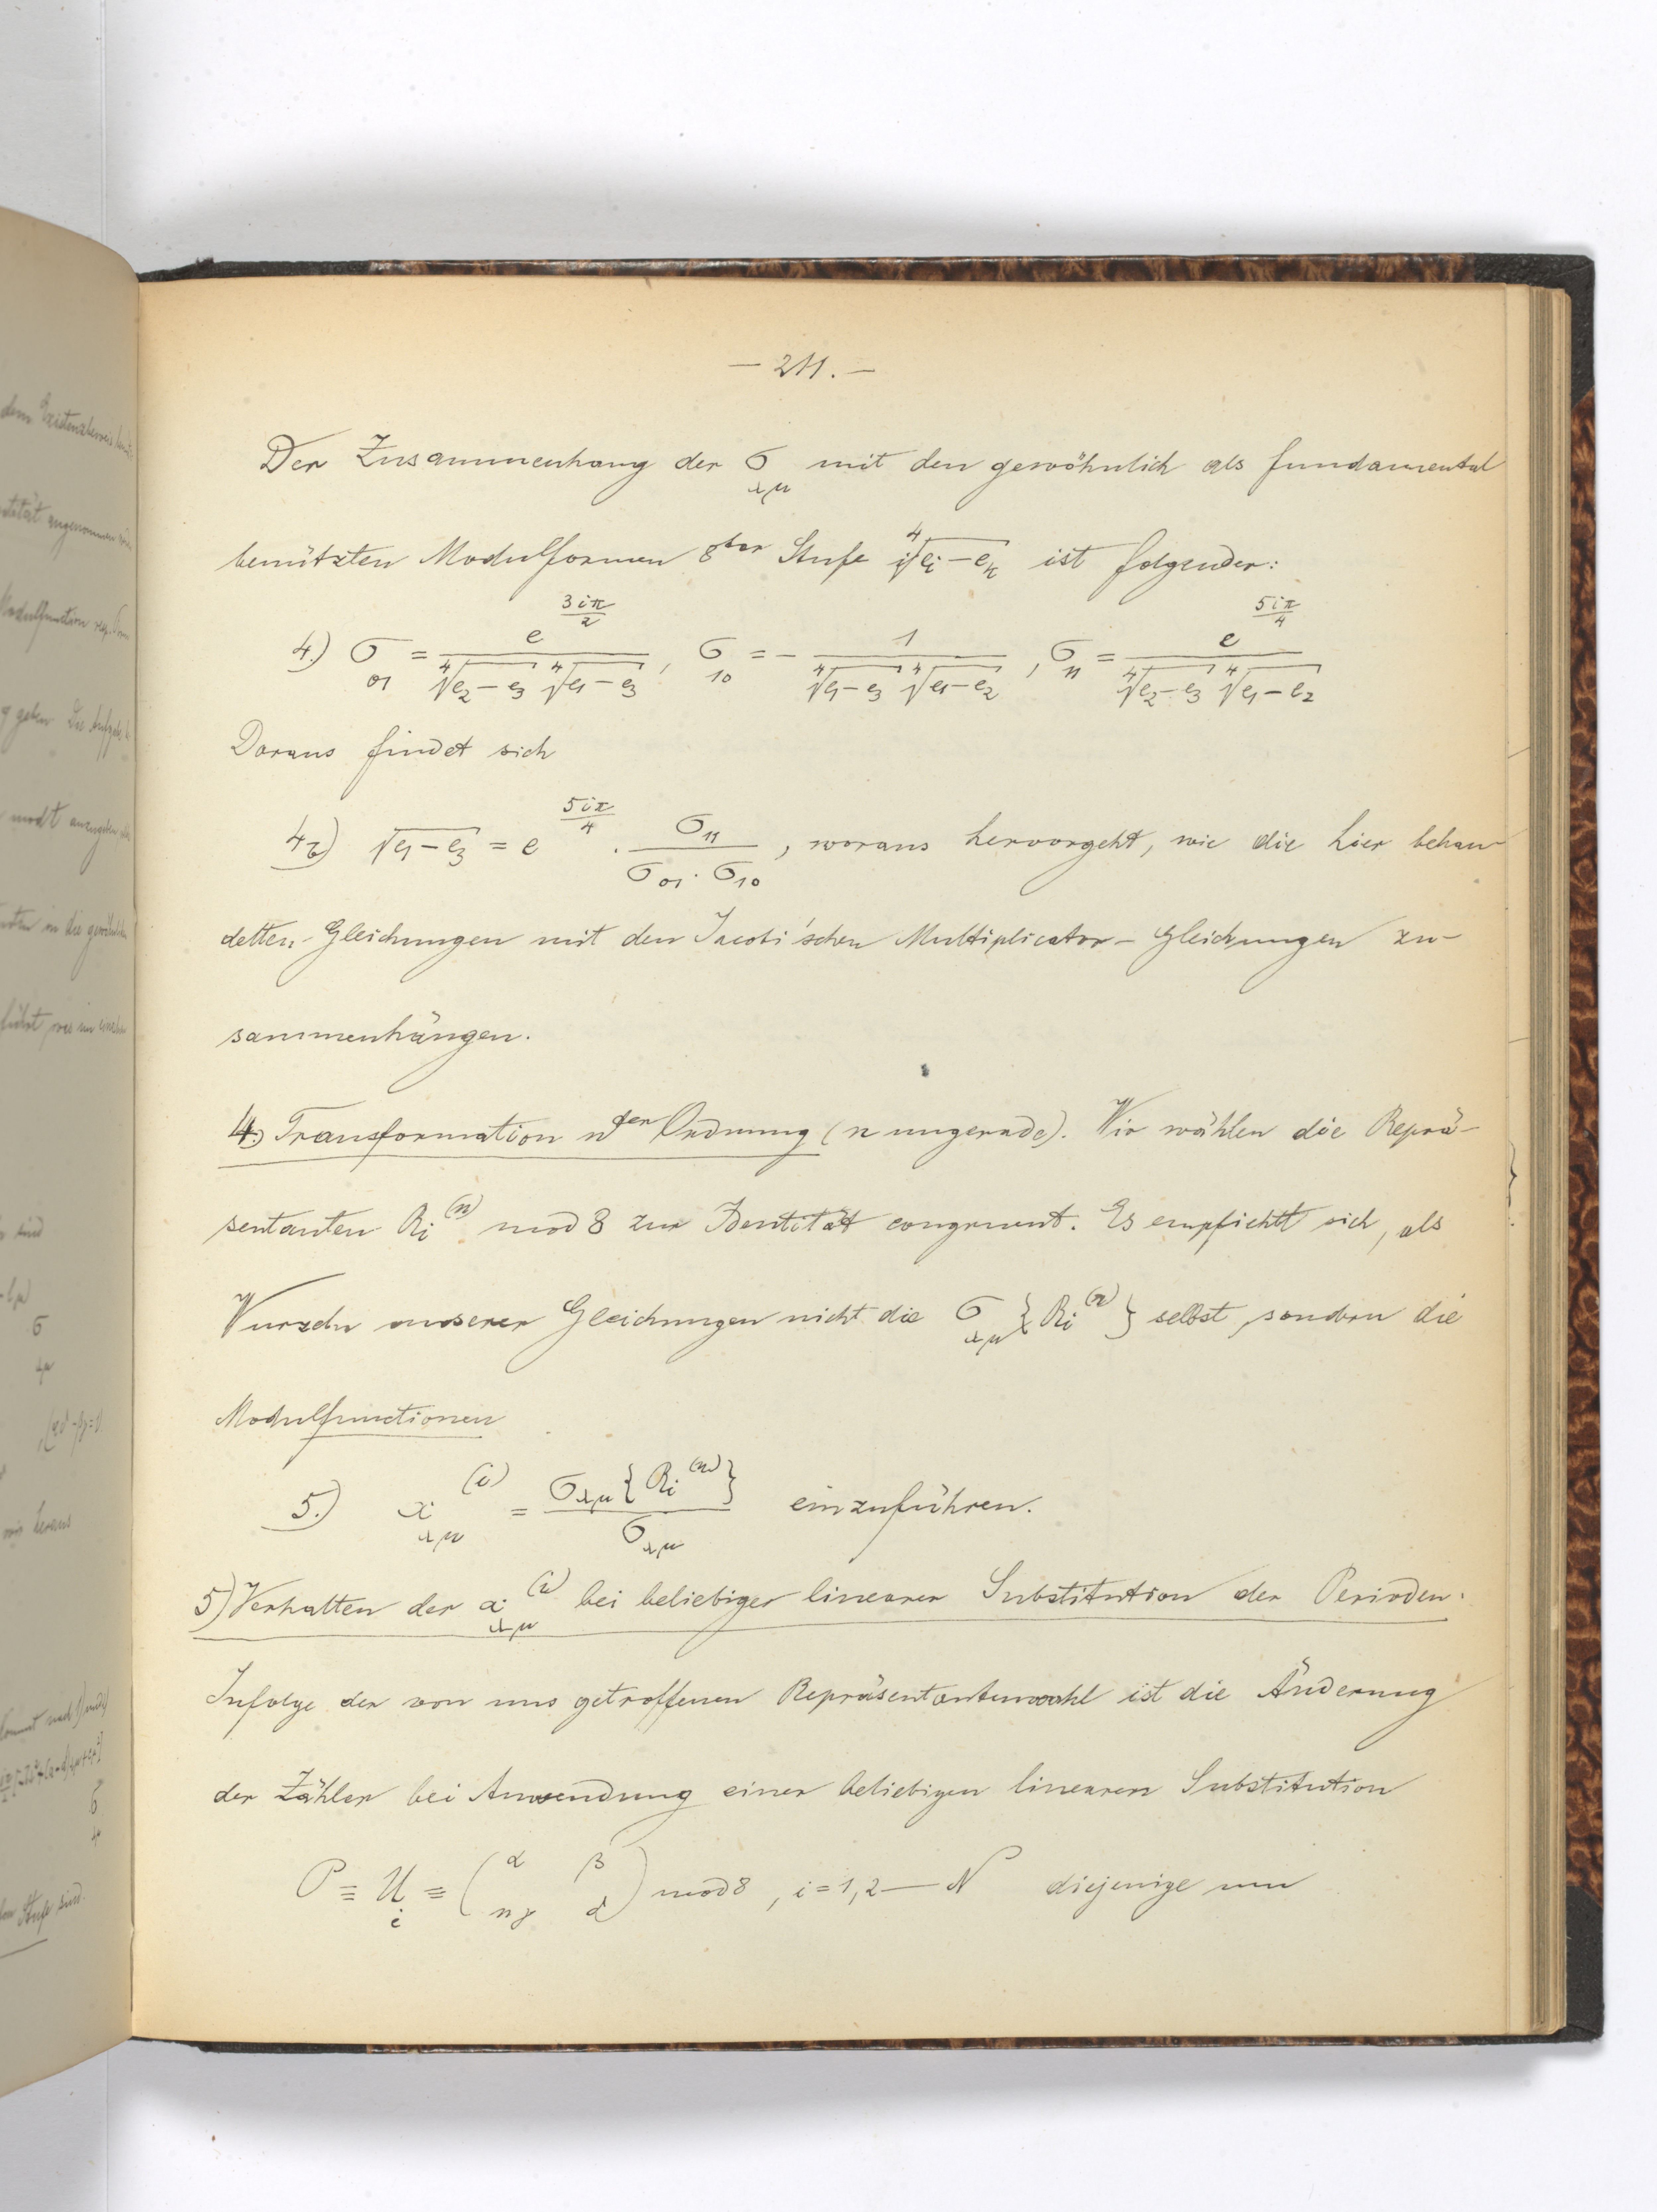 — 211. —
Der Zusammenhang der σ_λμ mit den gewöhnlich als fundamental
benützten Modulformen 8ter Stufe ∜(e_i − e_k) ist folgender:
4.) σ_01 = e^(3iπ/2) / (∜(e_2 − e_3) ∜(e_1 − e_3)), σ_10 = − 1 / (∜(e_1 − e_3) ∜(e_1 − e_2)), σ_11 = e^(5iπ/4) / (∜(e_2 − e_3) ∜(e_1 − e_2))
Daraus findet sich
√(e_1 − e_3) = e^(5iπ/4) · σ_11 / (σ_01 · σ_10), woraus hervorgeht, wie die hier behan-
delten Gleichungen mit den Jacobi'schen Multiplicator-Gleichungen zu-
sammenhängen.
4.) Transformation nter Ordnung (n ungerade). Wir wählen die Reprä-
sentanten R_i^(n) mod 8 zur Identität congruent. Es empfiehlt sich, als
Wurzeln unserer Gleichungen nicht die σ_λμ {R_i^(n)} selbst, sondern die
Modulfunctionen
5.) x_λμ^(i) = σ_λμ {R_i^(n)} / σ_λμ einzuführen.
5) Verhalten der x_λμ^(i) bei beliebiger linearer Substitution der Perioden.
Infolge der von uns getroffenen Repräsentantenwahl ist die Änderung
der Zähler bei Anwendung einer beliebigen linearen Substitution
P ≡ U_i ≡ (α β / nγ δ) mod 8, i = 1, 2 — N diejenige um